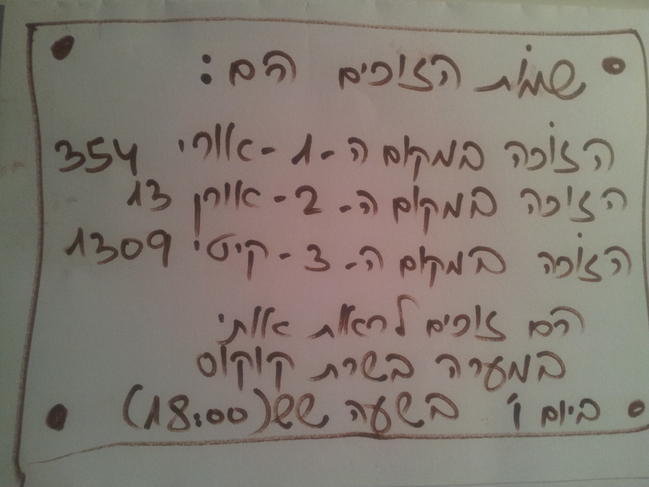 שמות הזוכים הם:
הזוכה במקום ה-1-אורי 354
הזוכה במקום ה-2-אורן 13
הזוכה במקום ה-3-קיטי 1309
הם זוכים לראות אותי
במערה בשרת קוקוס
ביום ו' בשעה שש (18:00)